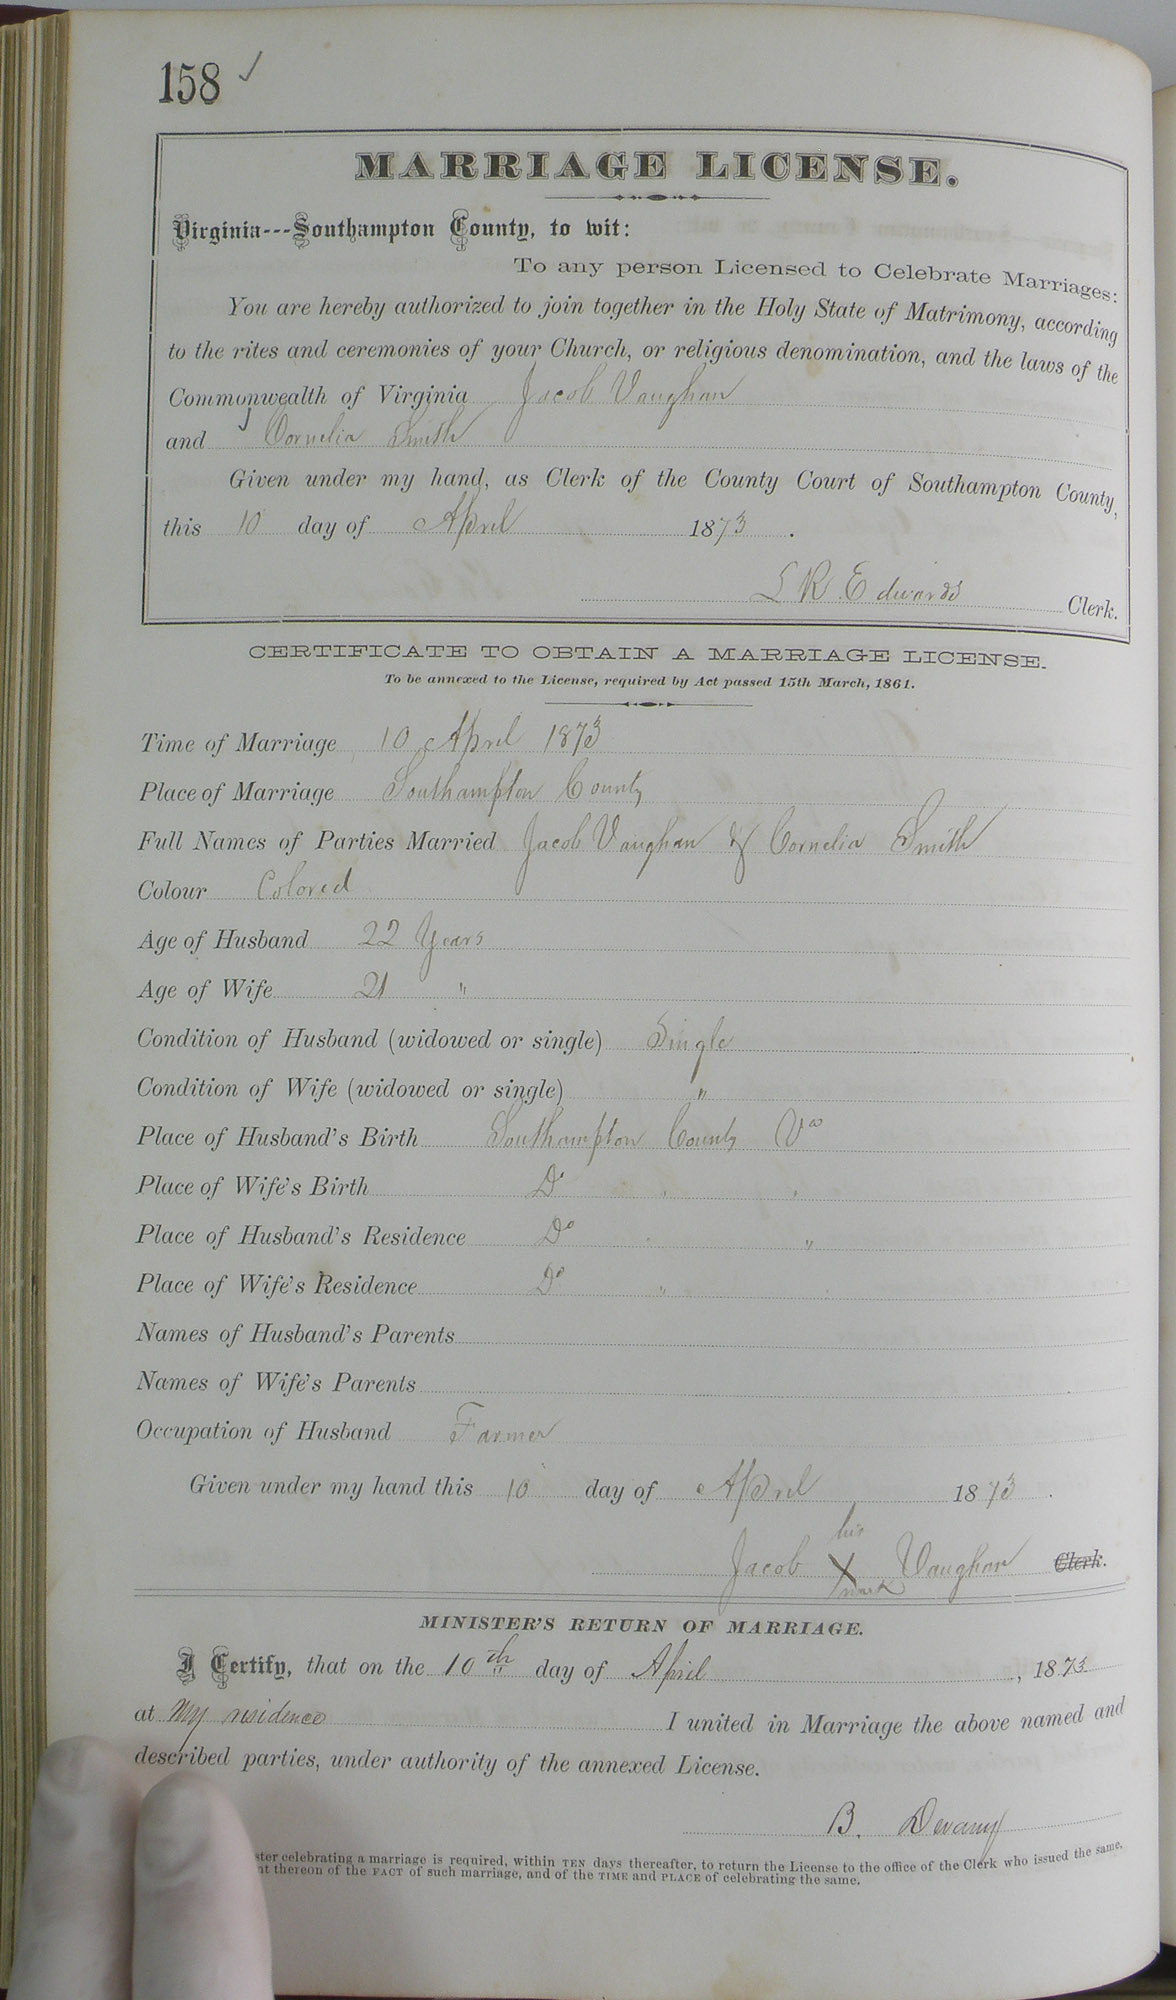 158 ✓
MARRIAGE LICENSE.
Virginia---Southampton County, to wit:
To any person Licensed to Celebrate Marriages:
You are hereby authorized to join together in the Holy State of Matrimony, according
to the rites and ceremonies of your Church, or religious denomination, and the laws of the
Commonwealth of Virginia Jacob Vaughan
and Cornelia Smith
Given under my hand, as Clerk of the County Court of Southampton County,
this 10 day of April 1873.
L R Edwards Clerk.
CERTIFICATE TO OBTAIN A MARRIAGE LICENSE.
To be annexed to the License, required by Act passed 15th March, 1861.
Time of Marriage 10 April 1873
Place of Marriage Southampton County
Full Names of Parties Married Jacob Vaughan & Cornelia Smith
Colour Colored
Age of Husband 22 Years
Age of Wife 21 "
Condition of Husband (widowed or single) Single
Condition of Wife (widowed or single) "
Place of Husband's Birth Southampton County Va
Place of Wife's Birth Do " "
Place of Husband's Residence Do " "
Place of Wife's Residence Do " "
Names of Husband's Parents
Names of Wife's Parents
Occupation of Husband Farmer
Given under my hand this 10 day of April 1873.
his
Jacob X Vaughan Clerk.
mark
MINISTER'S RETURN OF MARRIAGE.
I Certify, that on the 10th day of April, 1873
at My residence I united in Marriage the above named and
described parties, under authority of the annexed License.
B. Devany
ster celebrating a marriage is required, within TEN days thereafter, to return the License to the office of the Clerk who issued the same,
nt thereon of the FACT of such marriage, and of the TIME and PLACE of celebrating the same.